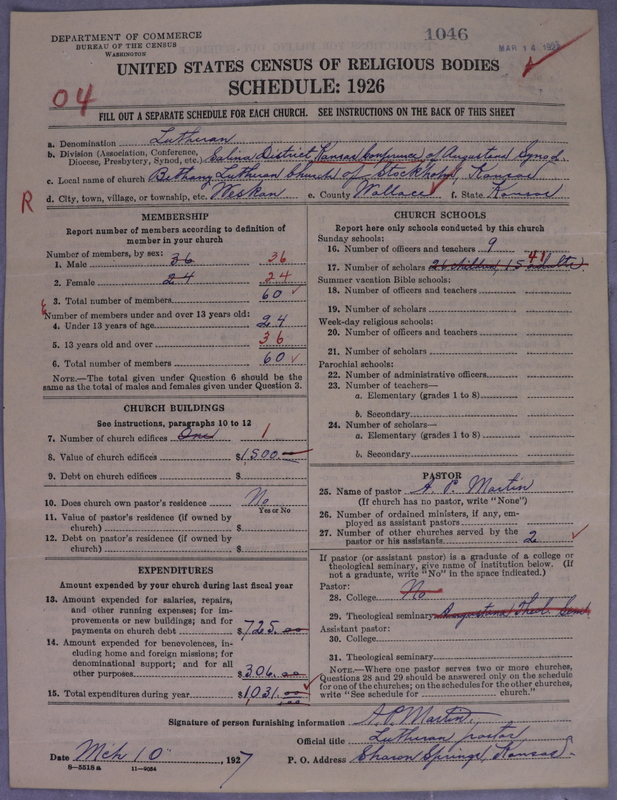 DEPARTMENT OF COMMERCE
BUREAU OF THE CENSUS
WASHINGTON
1046
MAR 14 1927
UNITED STATES CENSUS OF RELIGIOUS BODIES
SCHEDULE: 1926
04
FILL OUT A SEPARATE SCHEDULE FOR EACH CHURCH. SEE INSTRUCTIONS ON THE BACK OF THIS SHEET
a. Denomination Lutheran
b. Division (Association, Conference, Diocese, Presbytery, Synod, etc.) Salina District, Kansas Conference, of Augustana Synod.
c. Local name of church Bethany Lutheran Church of Stockholm, Kansas
R
d. City, town, village, or township, etc. Weskan e. County Wallace f. State Kansas
MEMBERSHIP
Report number of members according to definition of
member in your church
Number of members, by sex:
1. Male 36 36
2. Female 24 24
3. Total number of members 60
Number of members under and over 13 years old:
4. Under 13 years of age 24
5. 13 years old and over 36
6. Total number of members 60
NOTE.—The total given under Question 6 should be the
same as the total of males and females given under Question 3.
CHURCH BUILDINGS
See instructions, paragraphs 10 to 12
7. Number of church edifices One 1
8. Value of church edifices $1,500.
9. Debt on church edifices $
10. Does church own pastor's residence No
Yes or No
11. Value of pastor's residence (if owned by
church) $
12. Debt on pastor's residence (if owned by
church) $
EXPENDITURES
Amount expended by your church during last fiscal year
13. Amount expended for salaries, repairs,
and other running expenses; for im-
provements or new buildings; and for
payments on church debt $725.00
14. Amount expended for benevolences, in-
cluding home and foreign missions; for
denominational support; and for all
other purposes $306.00
15. Total expenditures during year $1,031.00
CHURCH SCHOOLS
Report here only schools conducted by this church
Sunday schools:
16. Number of officers and teachers 9
17. Number of scholars 26 children, 15 adults. 41
Summer vacation Bible schools:
18. Number of officers and teachers
19. Number of scholars
Week-day religious schools:
20. Number of officers and teachers
21. Number of scholars
Parochial schools:
22. Number of administrative officers
23. Number of teachers—
a. Elementary (grades 1 to 8)
b. Secondary
24. Number of scholars—
a. Elementary (grades 1 to 8)
b. Secondary
PASTOR
25. Name of pastor A. P. Martin
(If church has no pastor, write "None")
26. Number of ordained ministers, if any, em-
ployed as assistant pastors
27. Number of other churches served by the
pastor or his assistants 2
If pastor (or assistant pastor) is a graduate of a college or
theological seminary, give name of institution below. (If
not a graduate, write "No" in the space indicated.)
Pastor:
28. College No
29. Theological seminary Augustana Theol. Sem.
Assistant pastor:
30. College
31. Theological seminary
NOTE.—Where one pastor serves two or more churches,
Questions 28 and 29 should be answered only on the schedule
for one of the churches; on the schedules for the other churches,
write "See schedule for church."
Signature of person furnishing information A. P. Martin,
Official title Lutheran pastor
Date Mch 10 1927 P. O. Address Sharon Springs, Kansas.
8—5518 a 11—9054